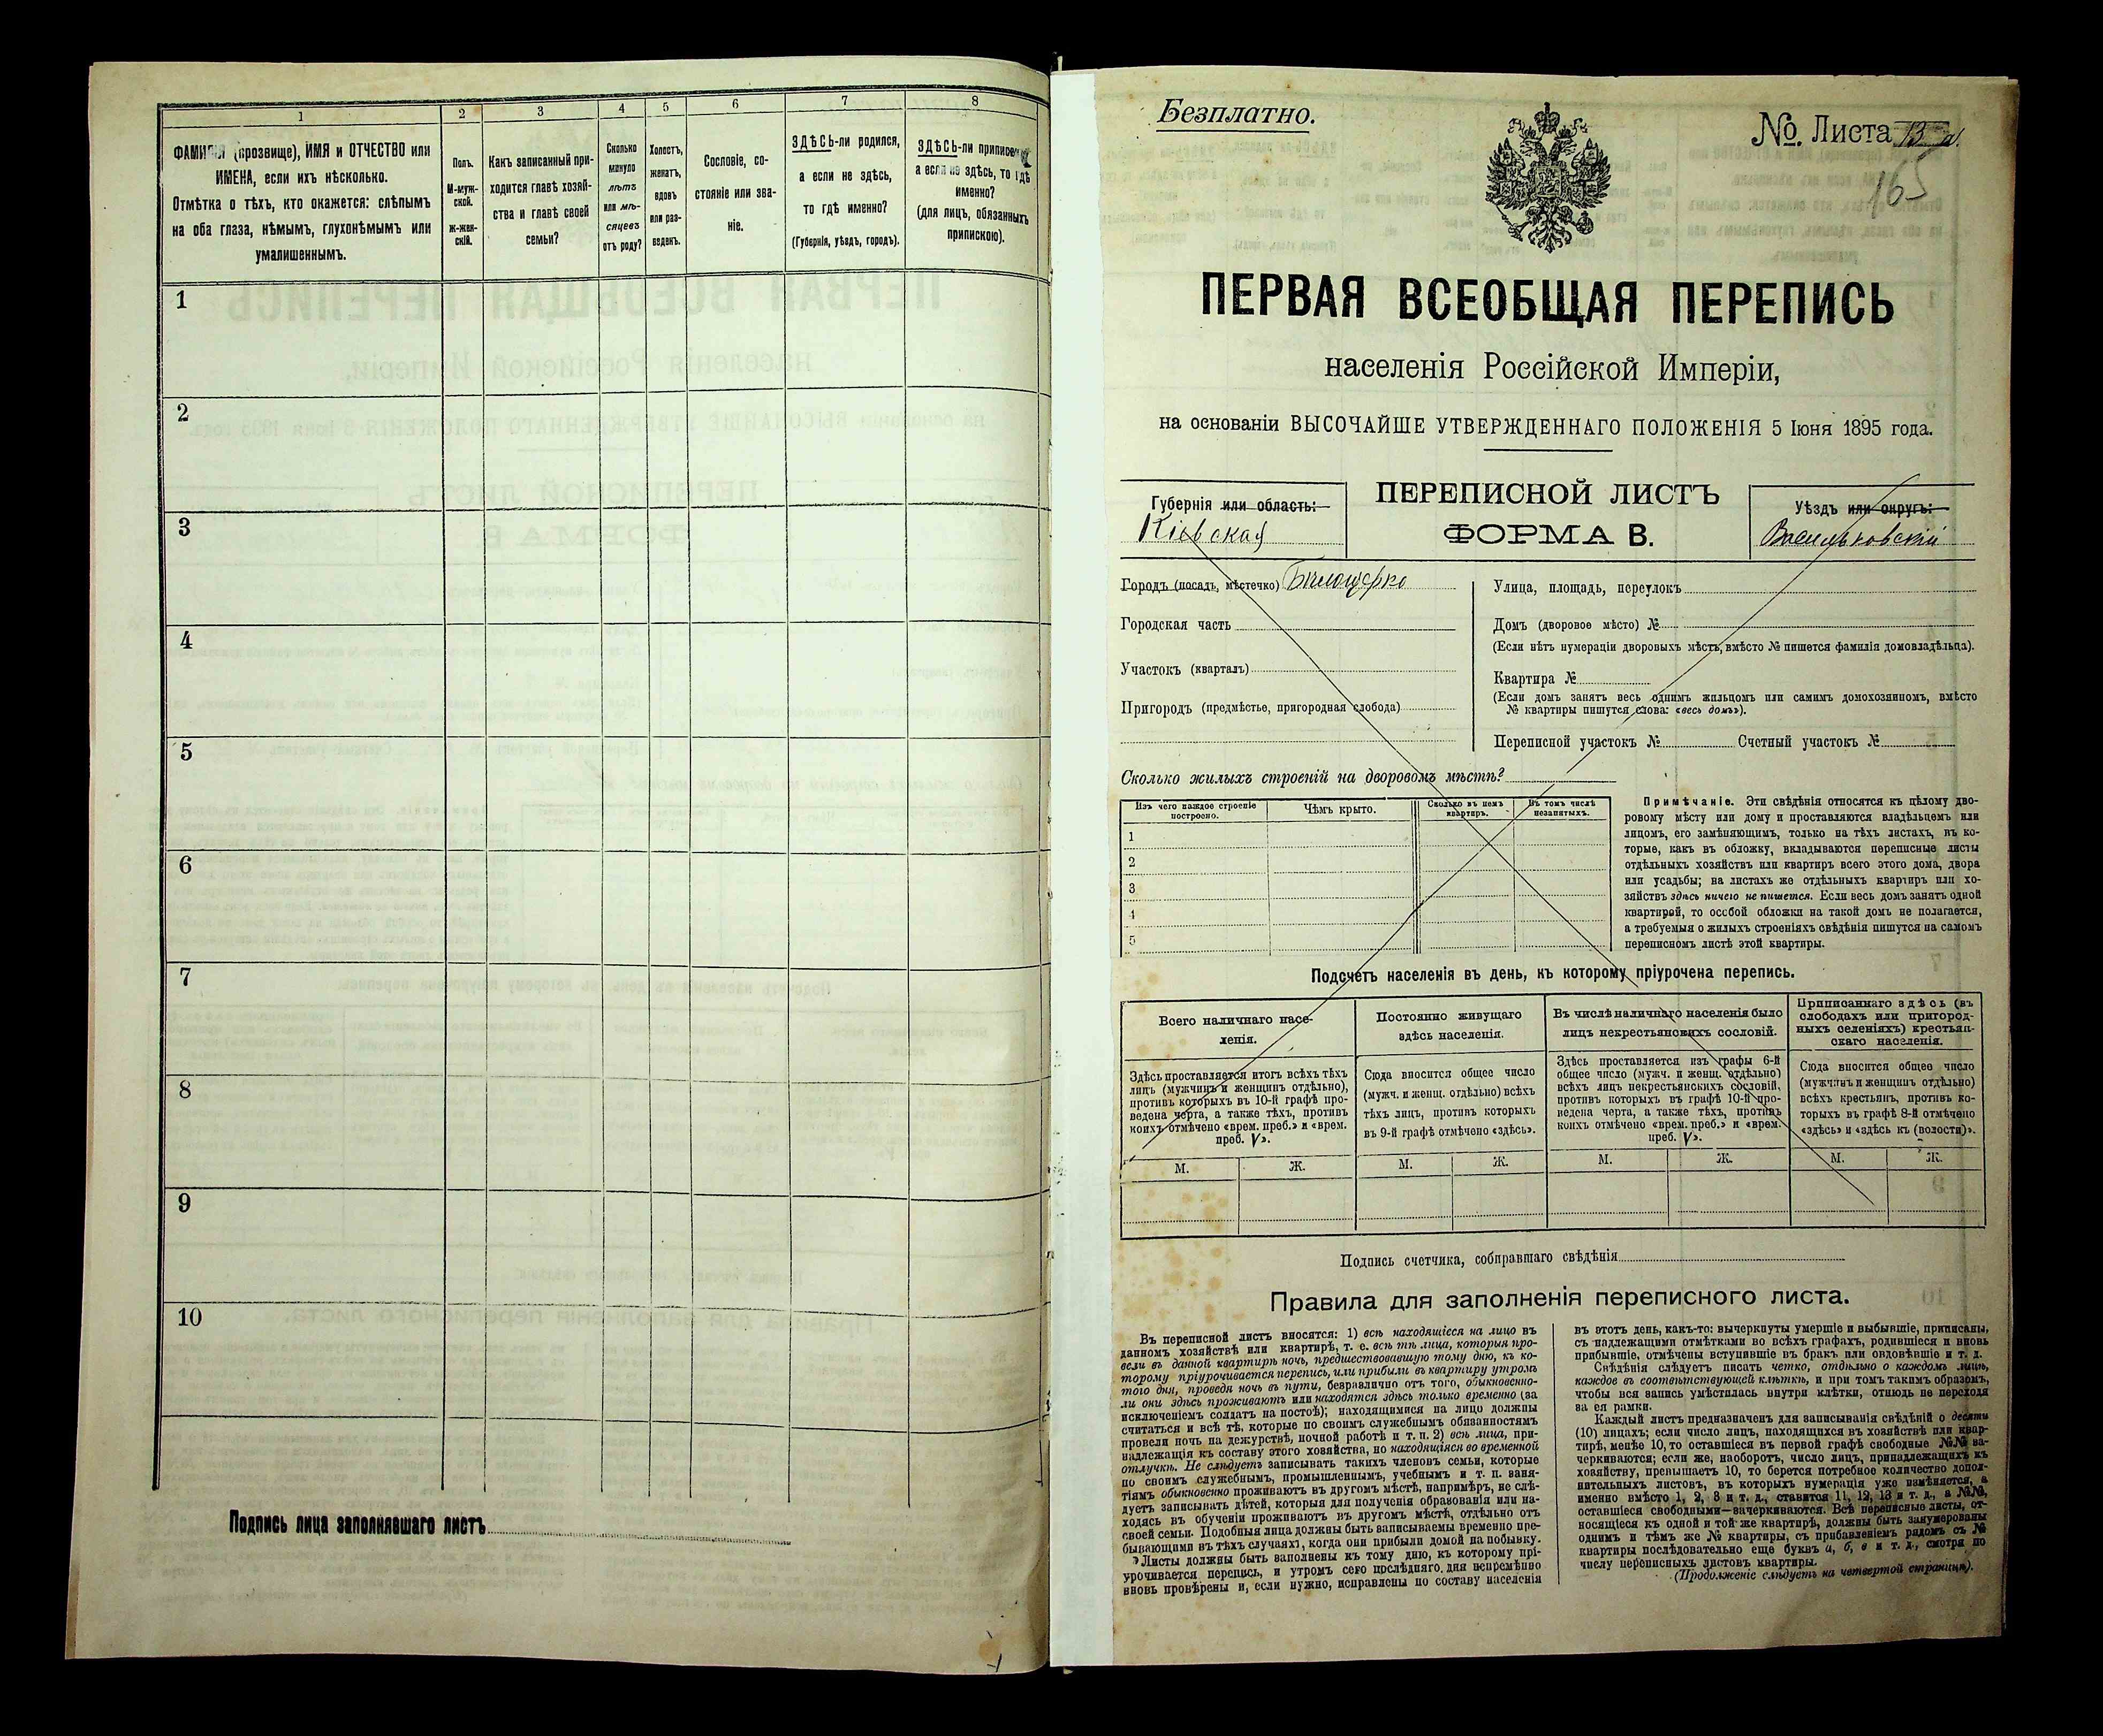 1
2
3
4
5
6
7
8
ФАМИЛІЯ (прозвище), ИМЯ и ОТЧЕСТВО или
ИМЕНА, если ихъ нѣсколько.
Отмѣтка о тѣхъ, кто окажется: слѣпымъ
на оба глаза, нѣмымъ, глухонѣмымъ или
умалишеннымъ.
Полъ.
М-муж-
ской.
Ж-жен-
скій.
Какъ записанный при-
ходится главѣ хозяй-
ства и главѣ своей
семьи?
Сколько
минуло
лѣтъ
или мѣ-
сяцевъ
отъ роду?
Холостъ,
женатъ,
вдовъ
или раз-
веденъ.
Сословіе, со-
стояніе или зва-
ніе.
ЗДѢСЬ-ли родился,
а если не здѣсь,
то гдѣ именно?
(Губернія, уѣздъ, городъ).
ЗДѢСЬ-ли приписанъ,
а если не здѣсь, то гдѣ
именно?
(для лицъ, обязанныхъ
припискою).
1
2
3
4
5
6
7
8
9
10
Подпись лица заполнявшаго листъ
Безплатно.
№ Листа 13 а.
165
ПЕРВАЯ ВСЕОБЩАЯ ПЕРЕПИСЬ
населенія Россійской Имперіи,
на основаніи ВЫСОЧАЙШЕ УТВЕРЖДЕННАГО ПОЛОЖЕНІЯ 5 Іюня 1895 года.
Губернія или область:
Кіевская
ПЕРЕПИСНОЙ ЛИСТЪ
ФОРМА В.
Уѣздъ или округъ:
Васильковскій
Городъ (посадъ, мѣстечко)
Городская часть
Участокъ (кварталъ)
Пригородъ (предмѣстье, пригородная слобода)
Улица, площадь, переулокъ
Домъ (дворовое мѣсто) №
(Если нѣтъ нумераціи дворовыхъ мѣстъ, вмѣсто № пишется фамилія домовладѣльца).
Квартира №
(Если домъ занятъ весь однимъ жильцомъ или самимъ домохозяиномъ, вмѣсто
№ квартиры пишутся слова: «весь домъ»).
Переписной участокъ № Счетный участокъ №
Сколько жилыхъ строеній на дворовомъ мѣстѣ?
Изъ чего каждое строеніе
построено.
Чѣмъ крыто.
Сколько въ немъ
квартиръ.
Въ томъ числѣ
незанятыхъ.
1
2
3
4
5
Примѣчаніе. Эти свѣдѣнія относятся къ цѣлому дво-
ровому мѣсту или дому и проставляются владѣльцемъ или
лицомъ, его замѣняющимъ, только на тѣхъ листахъ, въ ко-
торые, какъ въ обложку, вкладываются переписные листы
отдѣльныхъ хозяйствъ или квартиръ всего этого дома, двора
или усадьбы; на листахъ же отдѣльныхъ квартиръ или хо-
зяйствъ здѣсь ничего не пишется. Если весь домъ занятъ одной
квартирой, то особой обложки на такой домъ не полагается,
а требуемыя о жилыхъ строеніяхъ свѣдѣнія пишутся на самомъ
переписномъ листѣ этой квартиры.
Подсчетъ населенія въ день, къ которому пріурочена перепись.
Всего наличнаго насе-
ленія.
Постоянно живущаго
здѣсь населенія.
Въ числѣ наличнаго населенія было
лицъ некрестьянскихъ сословій.
Приписаннаго здѣсь (въ
слободахъ или пригород-
ныхъ селеніяхъ) крестьян-
скаго населенія.
Здѣсь проставляется итогъ всѣхъ тѣхъ
лицъ (мужчинъ и женщинъ отдѣльно),
противъ которыхъ въ 10-й графѣ про-
ведена черта, а также тѣхъ, противъ
коихъ отмѣчено «врем. преб.» и «врем.
преб. V».
Сюда вносится общее число
(мужч. и женщ. отдѣльно) всѣхъ
тѣхъ лицъ, противъ которыхъ
въ 9-й графѣ отмѣчено «здѣсь».
Здѣсь проставляется изъ графы 6-й
общее число (мужч. и женщ. отдѣльно)
всѣхъ лицъ некрестьянскихъ сословій,
противъ которыхъ въ графѣ 10-й про-
ведена черта, а также тѣхъ, противъ
коихъ отмѣчено «врем. преб.» и «врем.
преб. V».
Сюда вносится общее число
(мужчинъ и женщинъ отдѣльно)
всѣхъ крестьянъ, противъ ко-
торыхъ въ графѣ 8-й отмѣчено
«здѣсь» и «здѣсь къ (волости)».
М. Ж. М. Ж. М. Ж. М. Ж.
Подпись счетчика, собиравшаго свѣдѣнія
Правила для заполненія переписного листа.
Въ переписной листъ вносятся: 1) всѣ находящіеся на лицо въ
данномъ хозяйствѣ или квартирѣ, т. е. всѣ тѣ лица, которыя про-
вели въ данной квартирѣ ночь, предшествовавшую тому дню, къ ко-
торому пріурочивается перепись, или прибыли въ квартиру утромъ
того дня, проведя ночь въ пути, безразлично отъ того, обыкновенно-
ли они здѣсь проживаютъ или находятся здѣсь только временно (за
исключеніемъ солдатъ на постоѣ); находящимися на лицо должны
считаться и всѣ тѣ, которые по своимъ служебнымъ обязанностямъ
провели ночь на дежурствѣ, ночной работѣ и т. п. 2) всѣ лица, при-
надлежащія къ составу этого хозяйства, но находящіяся во временной
отлучкѣ. Не слѣдуетъ записывать такихъ членовъ семьи, которые
по своимъ служебнымъ, промышленнымъ, учебнымъ и т. п. заня-
тіямъ обыкновенно проживаютъ въ другомъ мѣстѣ, напримѣръ, не слѣ-
дуетъ записывать дѣтей, которыя для полученія образованія или на-
ходясь въ обученіи проживаютъ въ другомъ мѣстѣ, отдѣльно отъ
своей семьи. Подобныя лица должны быть записываемы временно пре-
бывающими въ тѣхъ случаяхъ, когда они прибыли домой на побывку.
Листы должны быть заполнены къ тому дню, къ которому прі-
урочивается перепись, и утромъ сего послѣдняго дня непремѣнно
вновь провѣрены и, если нужно, исправлены по составу населенія
въ этотъ день, какъ-то: вычеркнуты умершіе и выбывшіе, приписаны,
съ надлежащими отмѣтками во всѣхъ графахъ, родившіеся и вновь
прибывшіе, отмѣчены вступившіе въ бракъ или овдовѣвшіе и т. д.
Свѣдѣнія слѣдуетъ писать четко, отдѣльно о каждомъ лицѣ,
каждое въ соотвѣтствующей клѣткѣ, и при томъ такимъ образомъ,
чтобы вся запись умѣстилась внутри клѣтки, отнюдь не переходя
за ея рамки.
Каждый листъ предназначенъ для записыванія свѣдѣній о десяти
(10) лицахъ; если число лицъ, находящихся въ хозяйствѣ или квар-
тирѣ, менѣе 10, то оставшіеся въ первой графѣ свободные №№ за-
черкиваются; если же, наоборотъ, число лицъ, принадлежащихъ къ
хозяйству, превышаетъ 10, то берется потребное количество допол-
нительныхъ листовъ, въ которыхъ нумерація уже измѣняется, а
именно вмѣсто 1, 2, 3 и т. д., ставится 11, 12, 13 и т. д., а №№,
оставшіеся свободными—зачеркиваются. Всѣ переписные листы, от-
носящіеся къ одной и той же квартирѣ, должны быть занумерованы
однимъ и тѣмъ же № квартиры, съ прибавленіемъ рядомъ съ №
квартиры послѣдовательно еще буквъ а, б, в и т. д., смотря по
числу переписныхъ листовъ квартиры.
(Продолженіе слѣдуетъ на четвертой страницѣ).